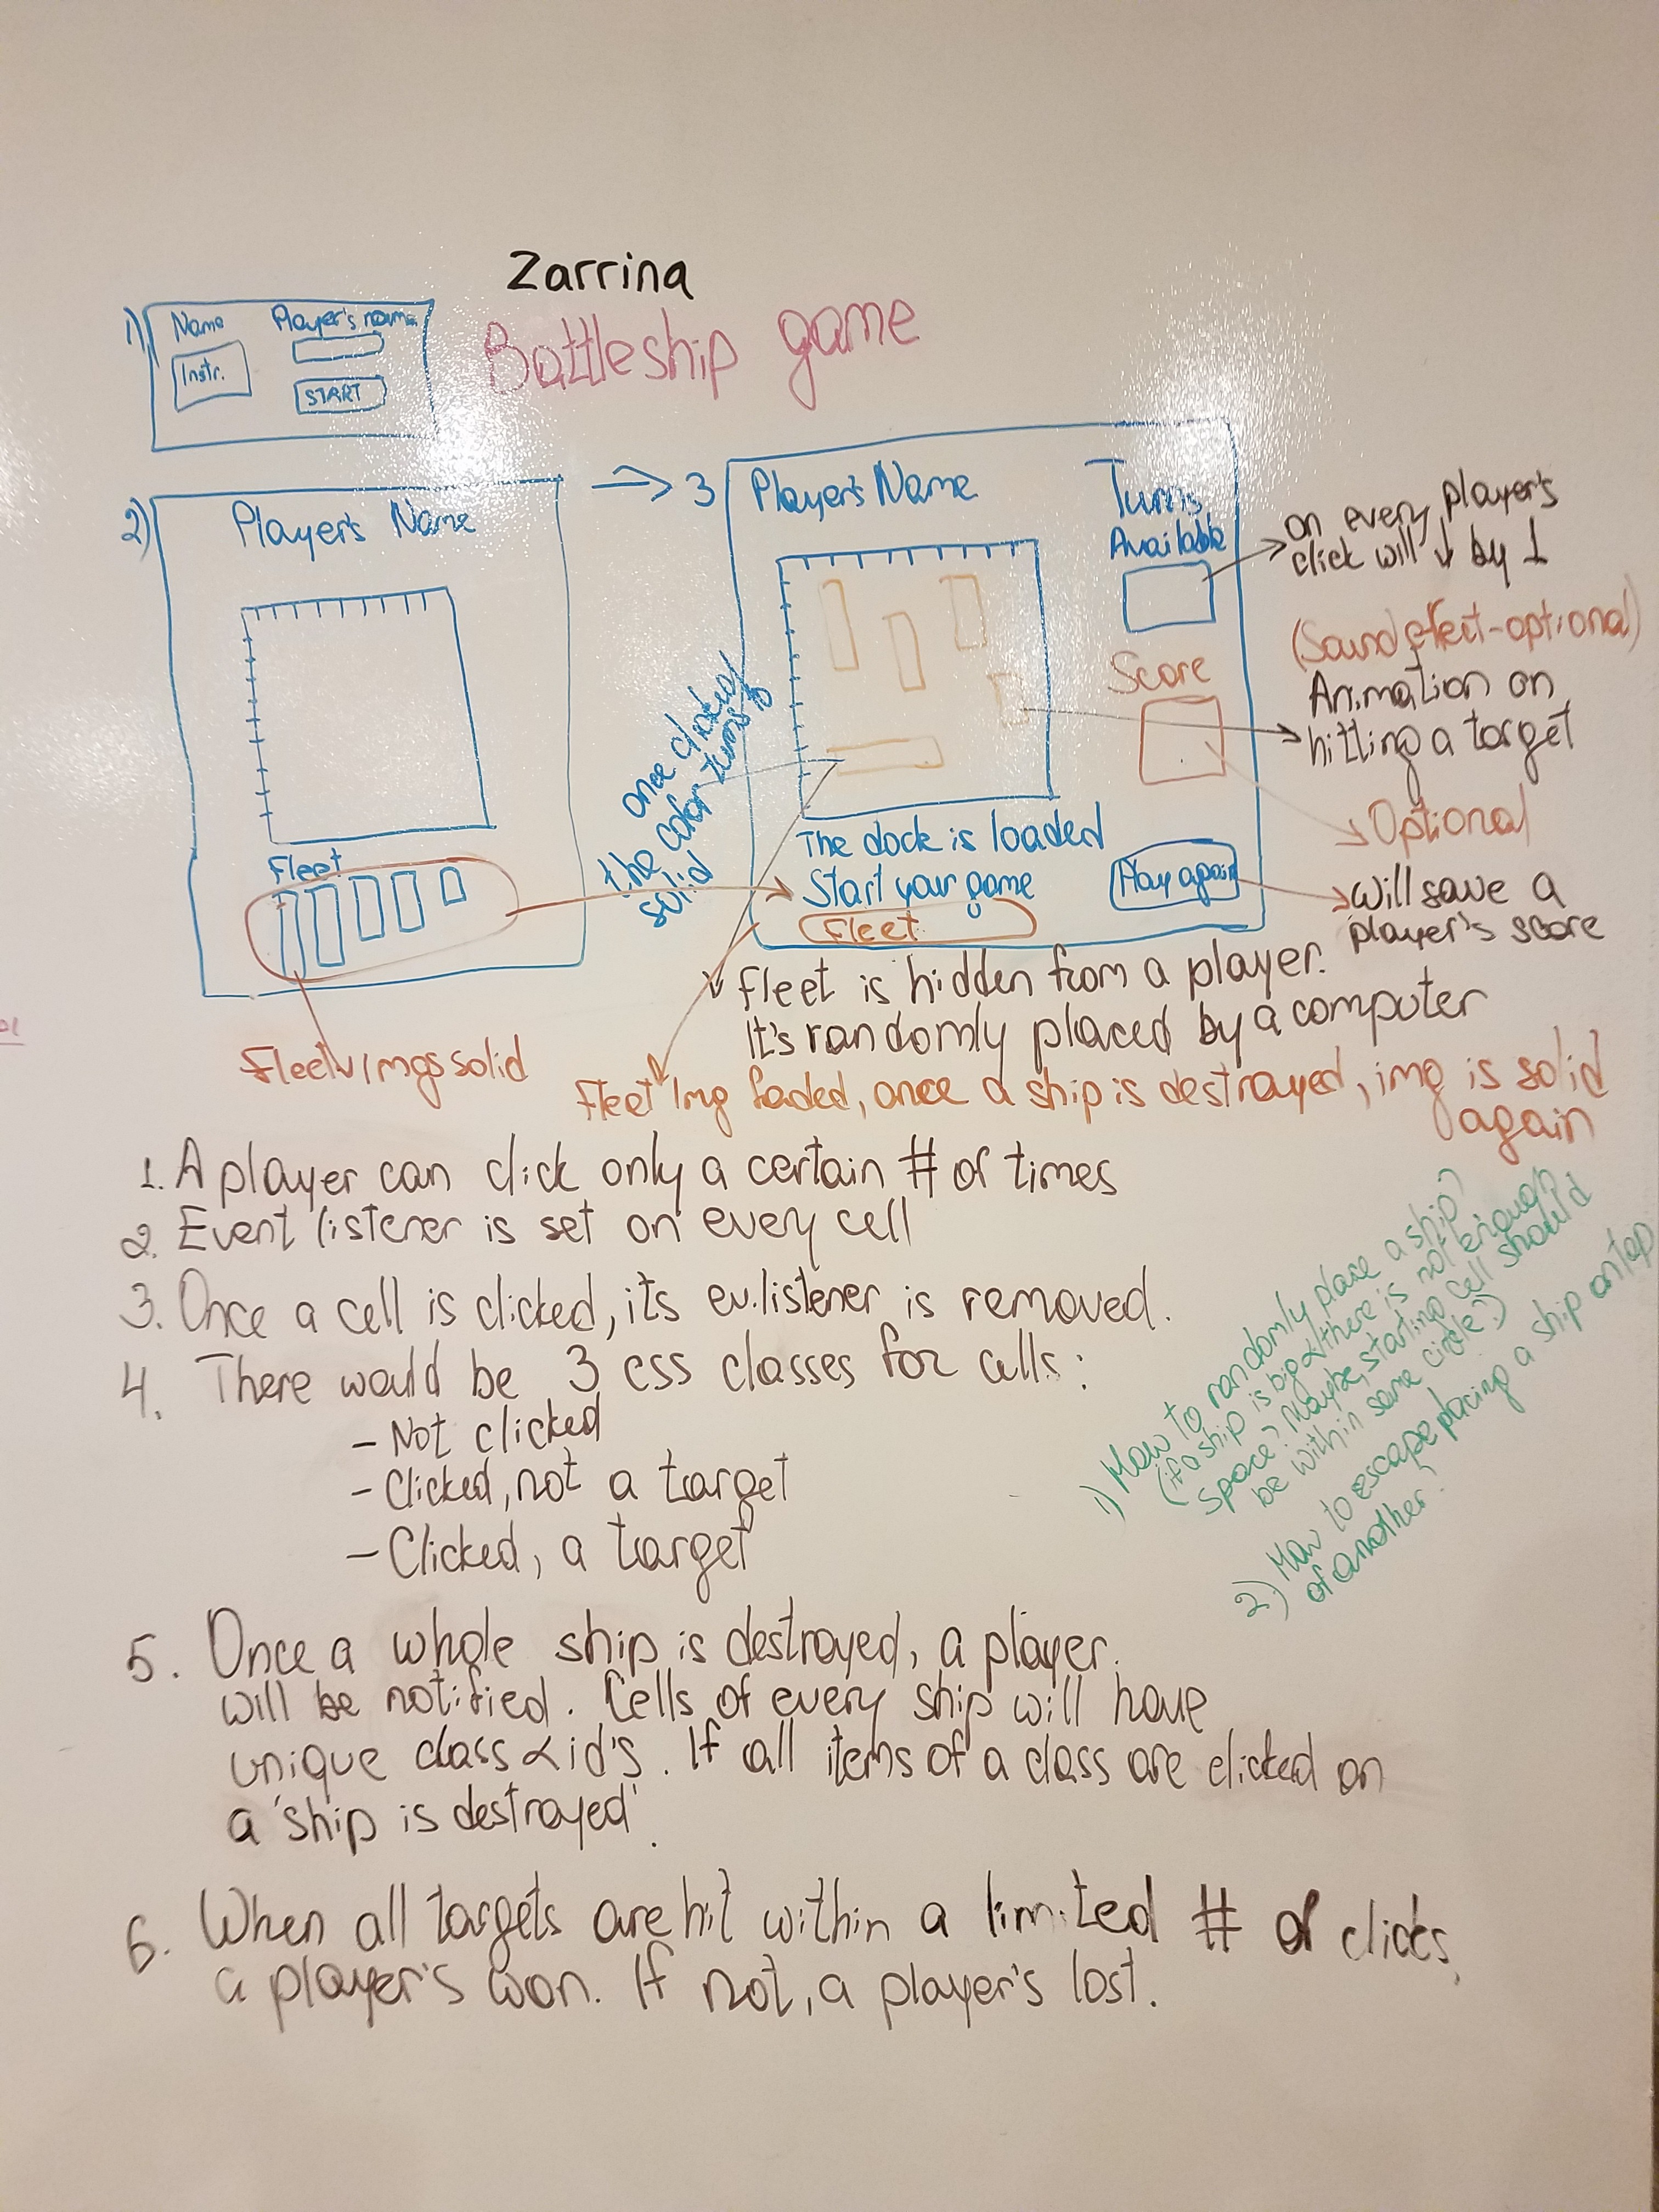 Zarrina
Battleship game
1)
Name
Player's name
Instr.
START
2)
Player's Name
Fleet
3
Player's Name
Turns
Available
on every player's
click will ↓ by 1
(Sound effect-optional)
Animation on
hitting a target
Score
Optional
once clicked
the color turns to
solid
The dock is loaded
Start your game
Fleet
Play again
will save a
player's score
Fleet is hidden from a player.
It's randomly placed by a computer
Fleet imgs solid
Fleet Img faded, once a ship is destroyed, img is solid
again
1. A player can click only a certain # of times
2. Event listener is set on every cell
3. Once a cell is clicked, its ev.listener is removed.
4. There would be 3 css classes for cells:
- Not clicked
- Clicked, not a target
- Clicked, a target
1) How to randomly place a ship?
(if a ship is big & there is not enough
space? Maybe, starting cell should
be within some circle?)
2) How to escape placing a ship on top
of another?
5. Once a whole ship is destroyed, a player
will be notified. Cells of every ship will have
unique class & id's. If all items of a class are clicked on
a 'ship is destroyed'.
6. When all targets are hit within a limited # of clicks,
a player's won. If not, a player's lost.